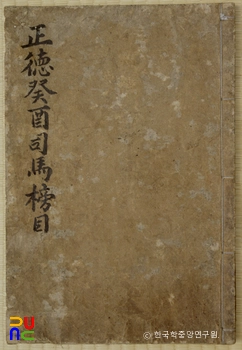 正德癸酉司馬榜目
ⓒ 한국학중앙연구원